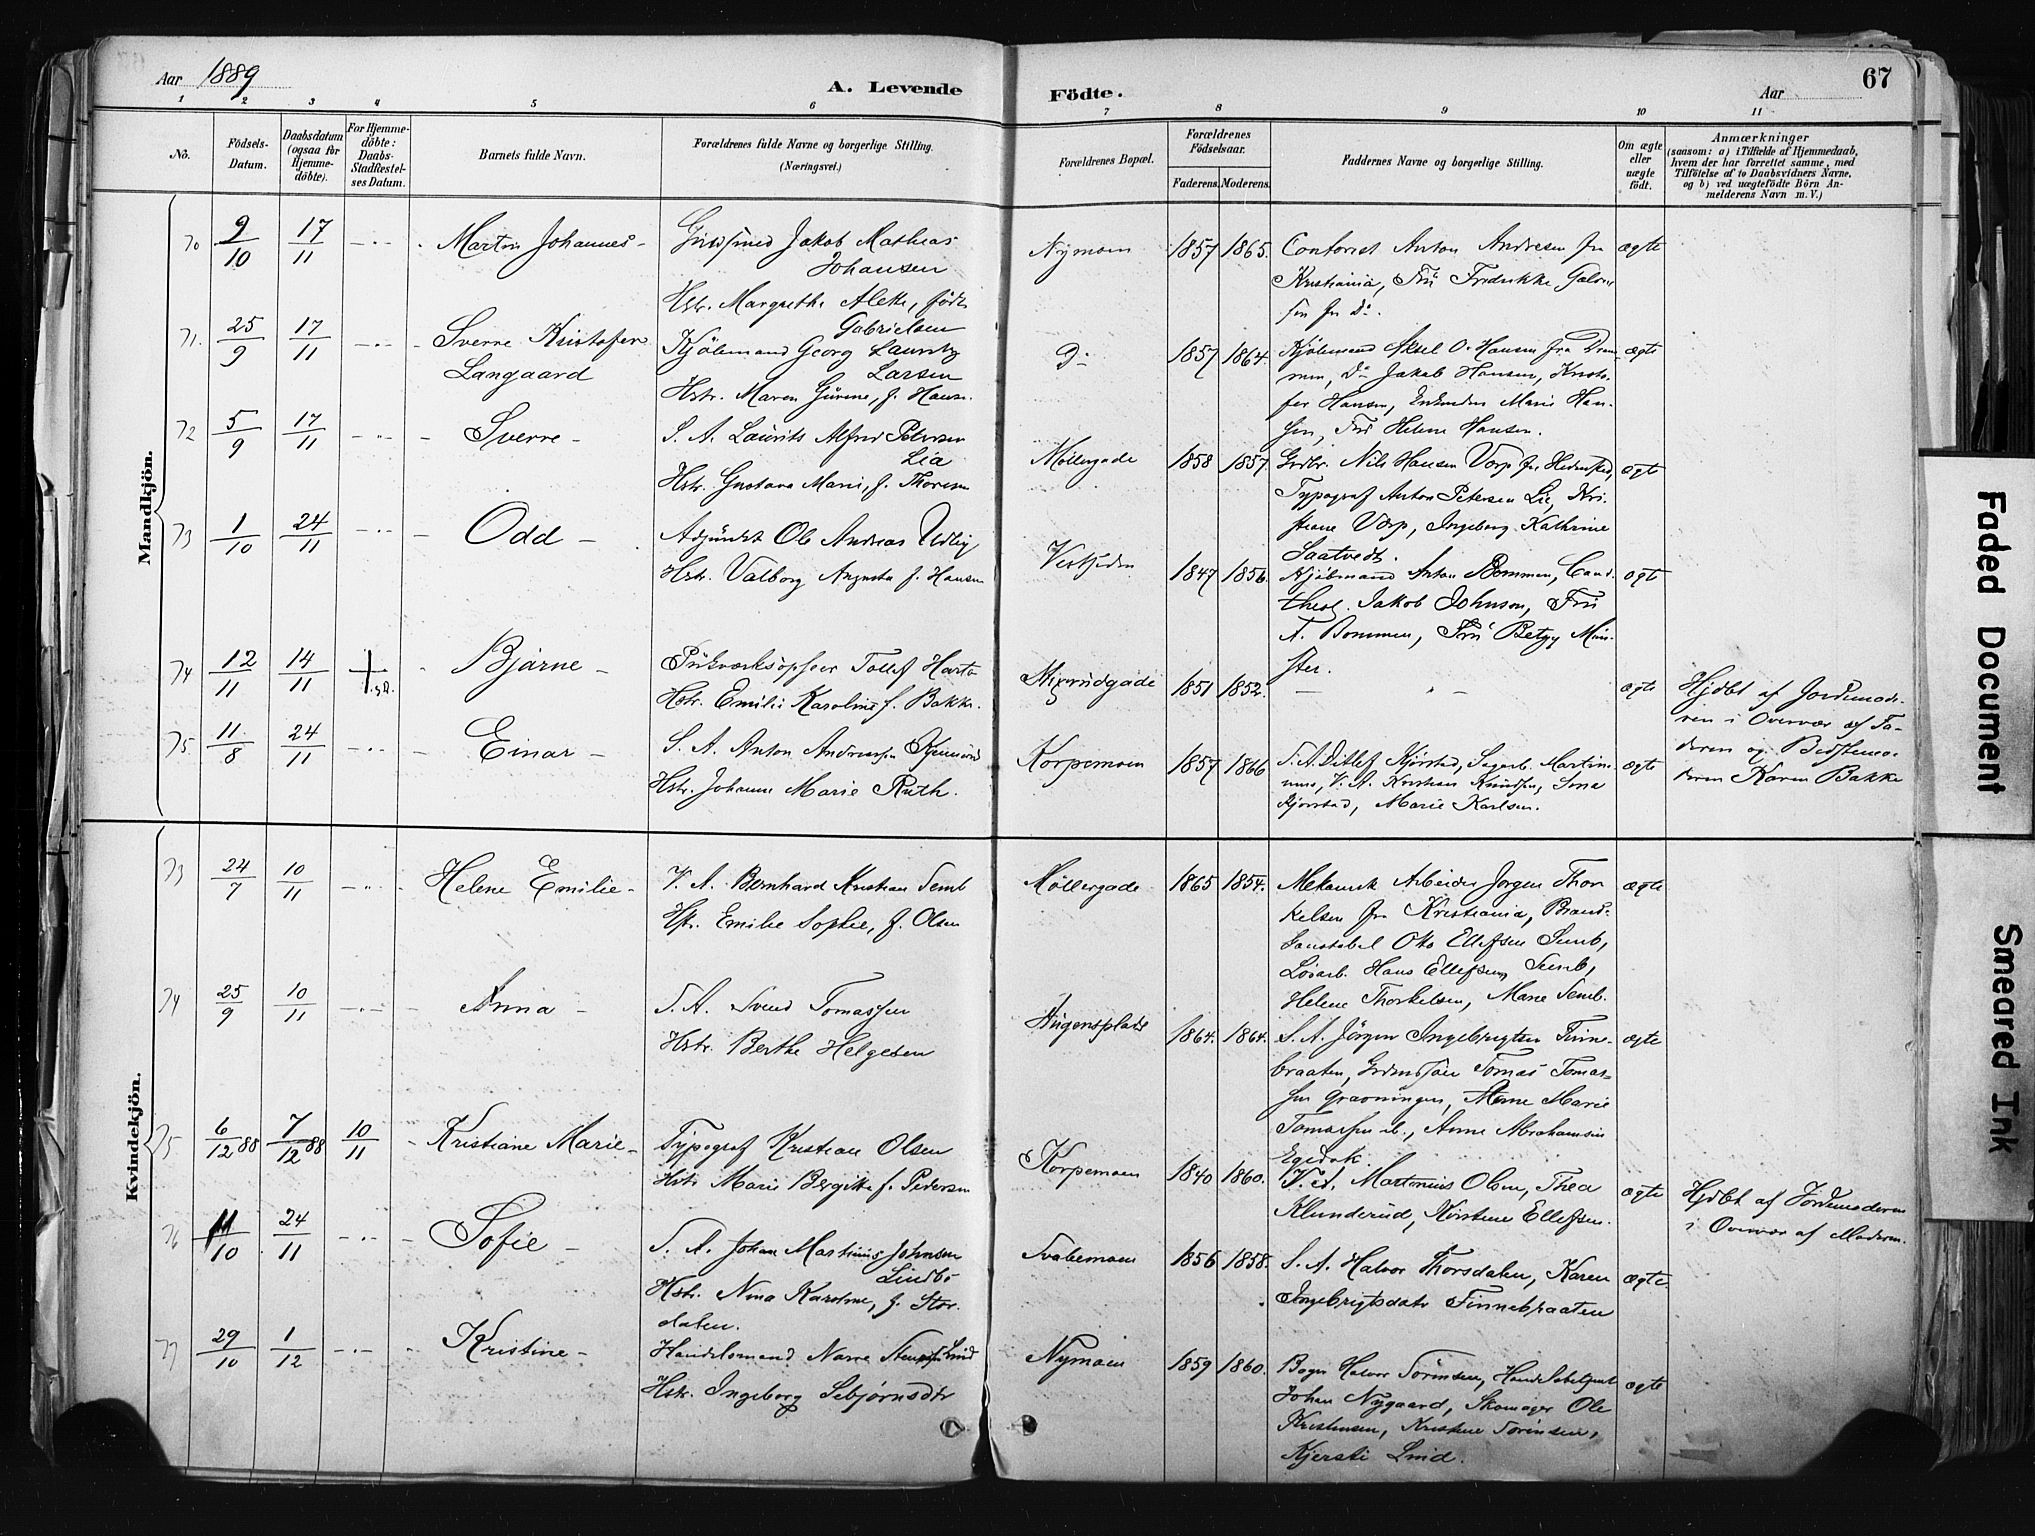 Aar 1889
A. Levende
Födte.
Aar
67
1 2 3 4 5 6 7 8 9 10 11
No.
Födsels-
Datum.
Daabsdatum
(ogsaa for
Hjemme-
döbte).
For Hjemme-
döbte:
Daabs-
Stadfæstel-
ses Datum.
Barnets fulde Navn.
Forældrenes fulde Navne og borgerlige Stilling.
(Næringsvei.)
Forældrenes Bopæl.
Forældrenes
Födselsaar.
Faderens. Moderens.
Faddernes Navne og borgerlige Stilling.
Om ægte
eller
uægte
födt.
Anmærkninger
(saasom: a) i Tilfælde af Hjemmedaab,
hvem der har forrettet samme, med
Tilföielse af to Daabsvidners Navne,
og b) ved uægtefödte Börn An-
melderens Navn m. V.)
Mandkjön.
70 9/10 17/11 Martin Johannes Jakob Mathias
Johansen
Hstr. Margrethe Aleth, födt
Gabrielsen
Nymoen 1857 1865. Contorist Anton Andresen fra
Kristiania, Frü Fredrikke
fra Do.
ægte
71. 25/9 17/11 Sverre Kristofer
Langaard
Kjöbmand Georg Lauritz
Larsen
Hstr. Maren Gurine, f. Hansen
Do 1857 1864. Kjöbmand Aksel O. Hansen fra Dram-
men, Do Jakob Hansen, Kristo-
fer Hansen, Enkemadam Marie Han-
sen, Frü Helene Hansen.
ægte
72 5/9 17/11 Sverre
S. A. Laurits Alfred Petersen
Lia
Hstr. Gustava Marie, f. Thoresen
Möllergade 1858 1857. Grdbr. Nils Hansen Vorp fra Hedenstad,
Typograf Anton Petersen Lie, Kri-
stiane Vorp, Ingeborg Kathrine
Saatvedt.
ægte
73 1/10 24/11 Odd
Adjunkt Ole Andreas
Hstr. Valborg Augusta f. Hansen
Vestsiden 1847 1856. Kjöbmand Anton Bommen, Cand.
theol. Jakob Johnson, Frü
A. Bommen, Frü Betzy Mün-
ster.
ægte
74 12/11 14/11 Bjarne
Tollef
Hstr. Emilie Karoline f. Bakke.
Myntgade 1851 1852. ægte
Hjdbt af Jordemode-
ren i Overvær af Fa-
deren og Bedstemo-
deren Karen Bakke
75 11/8 24/11 Einar
S. A. Anton Andreassen
Hstr. Johanne Marie Ruth.
Korpemoen 1857 1866 S. A. Ditlef Kjörstad, Sagarb. Martin-
nus, V. A. Kristian Knudsen, Lina
Kjörstad, Marie Karlsen.
ægte
Kvindekjön.
73 24/7 10/11 Helene Emilie
V. A. Bernhard Kristian Semb
Hstr. Emilie Sophie, f. Olsen
Möllergade 1865 1854. Mekanisk Arbeider Jorgen Thor-
kelsen fra Kristiania, Brand-
konstabel Otto Ellefsen Semb,
Lösarb. Hans Ellefsen Semb,
Helene Thorkelsen, Marie Semb.
ægte
74 25/9 10/11 Anna
S. A. Svend Tomassen
Hstr. Berthe Helgesen
Augensplads 1864. 1864. S. A. Jörgen Ingebrigtsen Finne-
braaten, Grdmssön Tomas Tomas-
sen Gravningen, Anne Marie
Tomassen ib., Anne Abrahamsen
Egedok.
ægte
75 6/12 88 7/12 88 10/11 Kristiane Marie
Typograf Kristian Olsen
Hstr. Marie Bergitte f. Pedersen
Korpemoen 1840 1860. V. A. Martinius Olsen, Thea
Klunderud, Kirstine Ellefsen.
ægte
Hjdbt af Jordemoderen
i Overvær af Moderen.
76 11/10 24/11 Sofie
S. A. Johan Martinius Johnsen
Lindbö
Hstr. Nina Karoline, f. Stor-
dalen.
Svabemoen 1856 1858. S. A. Halvor Thorsdalen, Karen
Ingebrigtsdatr Finnebraaten
ægte
77 29/10 1/12 Kristine
Handelsmand Narve Lind
Hstr. Ingeborg Sebjørnsdtr
Nymoen 1859 1860. Halvor Sörensen,
Johan Nygaard, Skomager Ole
Kristensen, Kristine Sörensen,
Kjersti Lind.
ægte
Faded Document
Smeared Ink